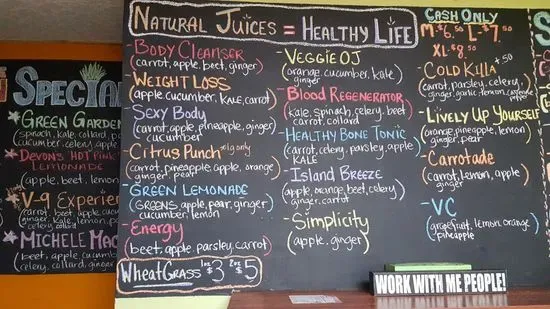 NATURAL JUICES = HEALTHY LIFE
CASH ONLY
M- $6.50 L- $7.50
XL- $8.50
SPECIAL
GREEN GARDEN
spinach, kale, collard,
cucumber, celery, apple
DEVON'S HOT PINK
LEMONADE
(apple, beet, lemon
V-9 EXPERIENCE
(carrot, beet, apple, cucumber
ginger, kale, lemon,
celery, collard
MICHELE MAC
(beet, apple, cucumber
celery, collard, ginger
- BODY CLEANSER
(carrot, apple, beet, ginger)
- WEIGHT LOSS
(apple, cucumber, KALE, carrot)
- SEXY BODY
(carrot, apple, pineapple, ginger,
cucumber)
- CITRUS PUNCH only
(carrot, pineapple, apple, orange
ginger, pear)
- GREEN LEMONADE
(GREENS, apple, pear, ginger,
cucumber, lemon)
- ENERGY
(beet, apple, parsley, carrot)
WHEATGRASS 1oz $3 2oz $5
- VEGGIE OJ
(orange, cucumber, kale,
ginger)
- BLOOD REGENERATOR
(kale, spinach, celery, beet
carrot, collard)
- HEALTHY BONE TONIC
(carrot, celery, parsley, apple
KALE)
- ISLAND BREEZE
(apple, orange, beet, celery
ginger, carrot)
- Simplicity
(apple, ginger)
- COLD KILLA +50
(carrot, parsley, celery,
ginger, garlic, lemon, cayenne pepper)
- LIVELY UP YOURSELF
(orange, pineapple, lemon
ginger, pear)
- CARROTADE
(carrot, lemon, apple
ginger)
- VC
(grapefruit, lemon, orange
pineapple)
WORK WITH ME PEOPLE!